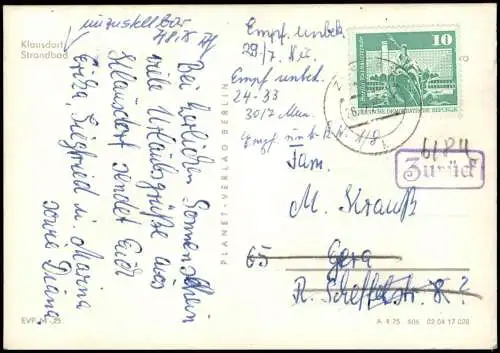 Klausdorf
Strandbad
unzustellbar
Bei herrlichen Sonnenschein
viele Urlaubsgrüße aus
Klausdorf sendet Euch
Erika, Siegfried u. Marina
sowie Diana
EVP M -,25
PLANET-VERLAG BERLIN
Empf. unbek.
29/7.
Empf unbek.
24-33
30/7
Empf. unbek.
10
DEUTSCHE DEMOKRATISCHE REPUBLIK
6184
Zurück
Fam.
M. Strauß
65 Gera
R. Scheffelstr. 8?
A 4 75 606 02 04 17 028